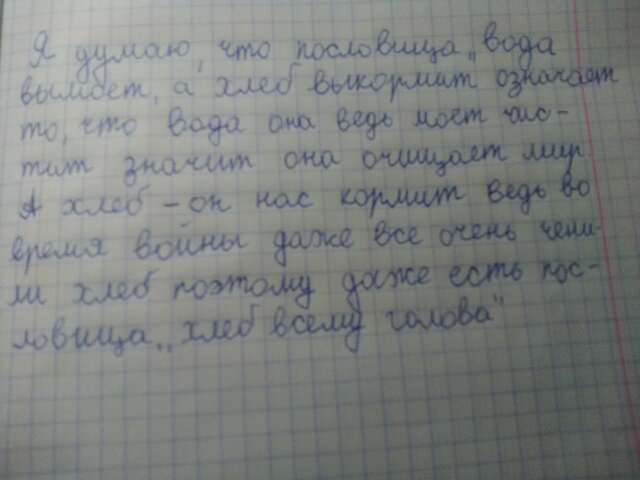 Я думаю, что пословица „вода
вымоет, а хлеб выкормит означает
то, что вода она ведь моет чис-
тит значит она очищает мир.
А хлеб – он нас кормит ведь во
время войны даже все очень цени-
ли хлеб поэтому даже есть пос-
ловица „хлеб всему голова"